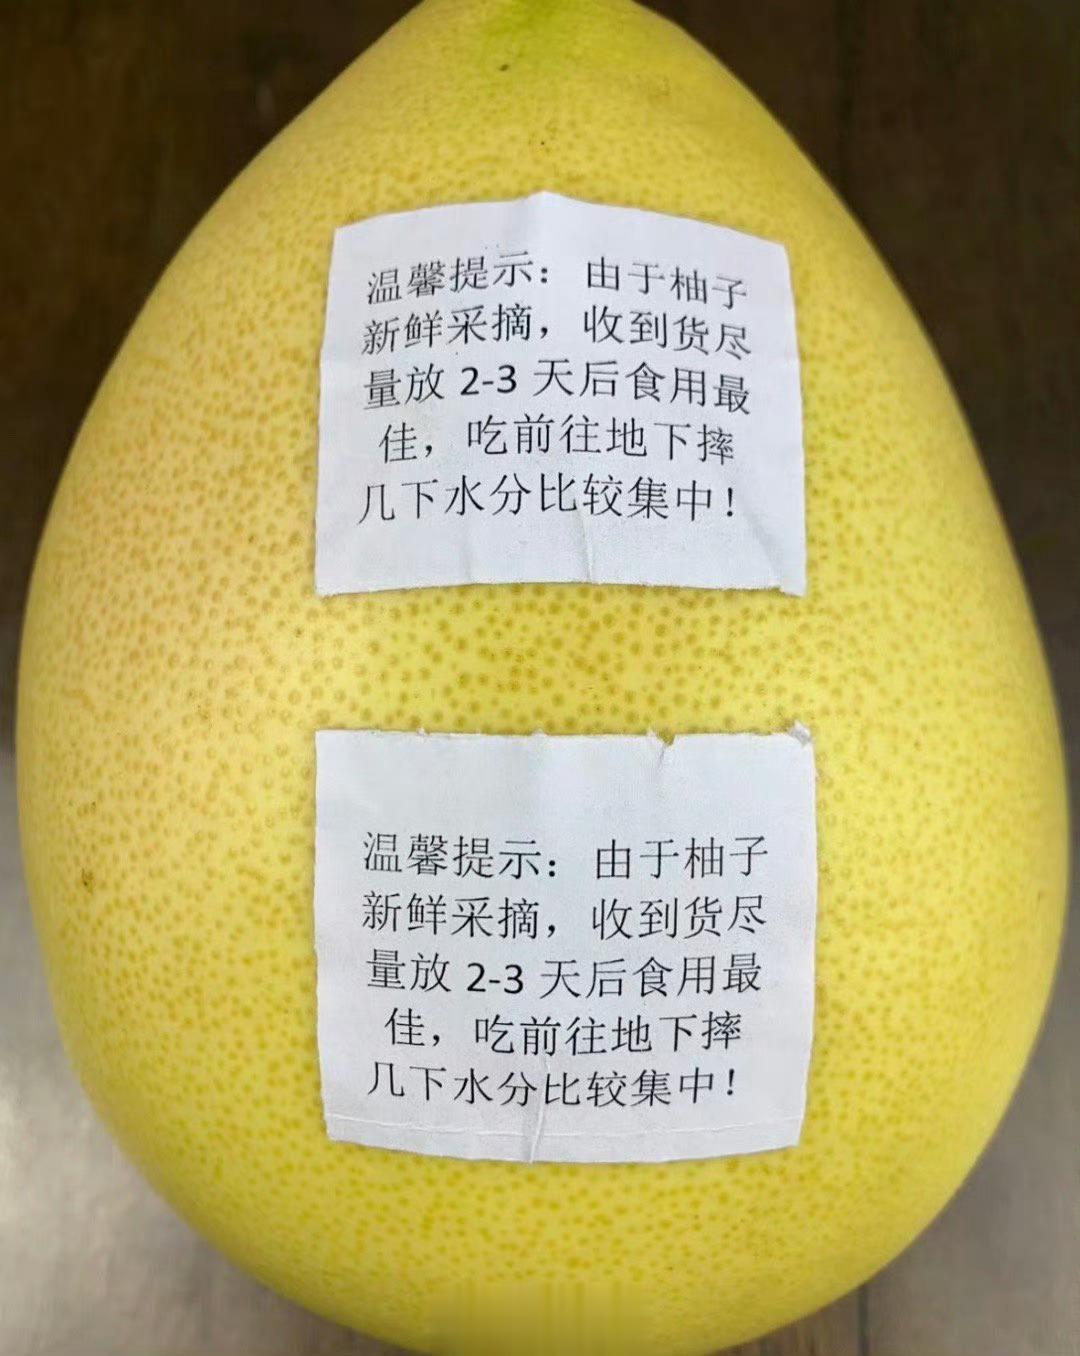 温馨提示： 由于柚子
新鲜采摘，收到货尽
量放 2-3 天后食用最
佳，吃前往地下摔
几下水分比较集中！
温馨提示： 由于柚子
新鲜采摘，收到货尽
量放 2-3 天后食用最
佳，吃前往地下摔
几下水分比较集中！